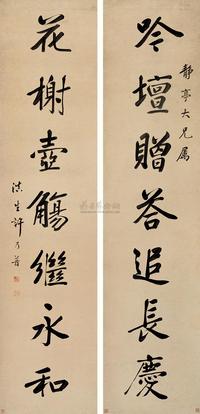 吟壇贈答追長慶
靜亭大兄屬
花榭壺觴繼永和
滇生許乃普